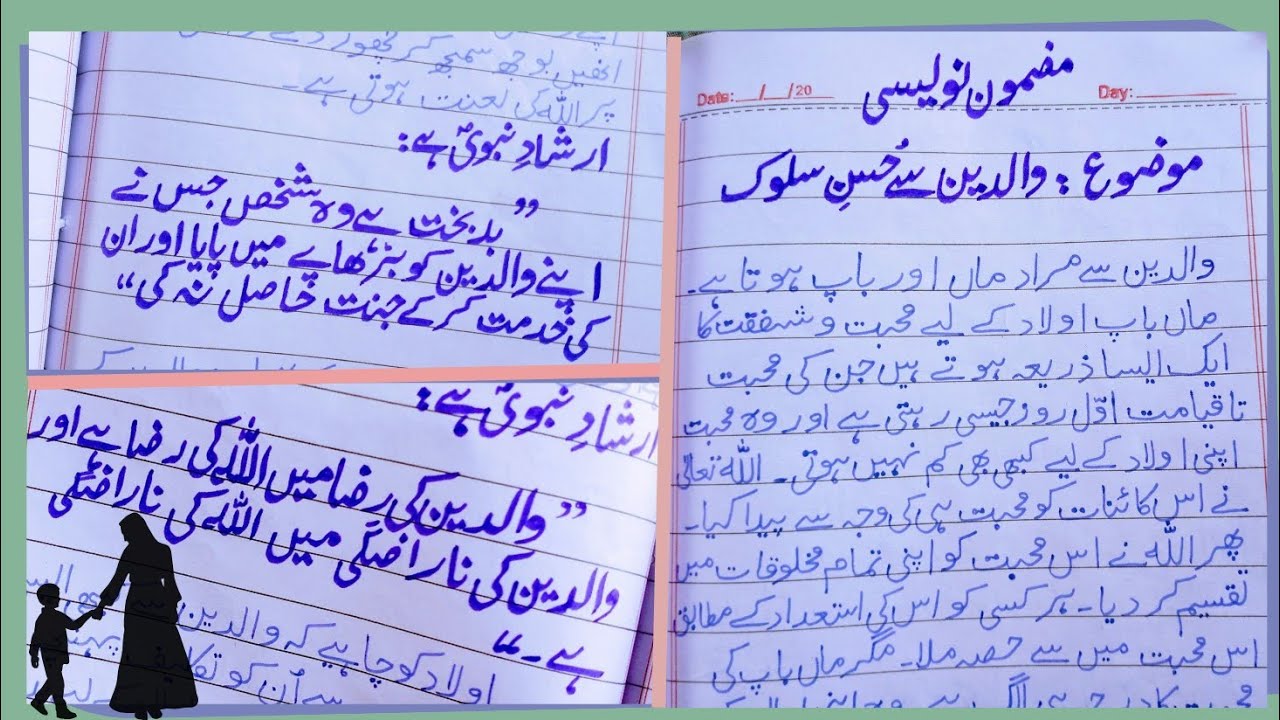 انھیں بوجھ سمجھ کر چھوڑ دے
پر اللہ کی لعنت ہوتی ہے۔
ارشادِ نبویؐ ہے:
”بدبخت ہے وہ شخص جس نے
اپنے والدین کو بڑھاپے میں پایا اور ان
کی خدمت کر کے جنت حاصل نہ کی“
ارشادِ نبویؐ ہے:
”والدین کی رضا میں اللہ کی رضا ہے اور
والدین کی ناراضگی میں اللہ کی ناراضگی
ہے۔“
اولاد کو چاہیے کہ والدین سے
اُن کو تکلیف
مضمون نویسی
Date: __/__/20 Day:
موضوع : والدین سے حُسنِ سلوک
والدین سے مراد ماں اور باپ ہوتا ہے۔
ماں باپ اولاد کے لیے محبت و شفقت کا
ایک ایسا ذریعہ ہوتے ہیں جن کی محبت
تا قیامت اوّل روز جیسی رہتی ہے اور وہ محبت
اپنی اولاد کے لیے کبھی بھی کم نہیں ہوتی۔ اللہ تعالیٰ
نے اس کائنات کو محبت ہی کی وجہ سے پیدا کیا۔
پھر اللہ نے اس محبت کو اپنی تمام مخلوقات میں
تقسیم کر دیا۔ ہر کسی کو اس کی استعداد کے مطابق
اس محبت میں سے حصہ ملا۔ مگر ماں باپ کی